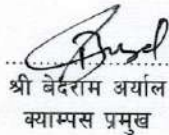 श्री बेदराम अर्याल
क्याम्पस प्रमुख